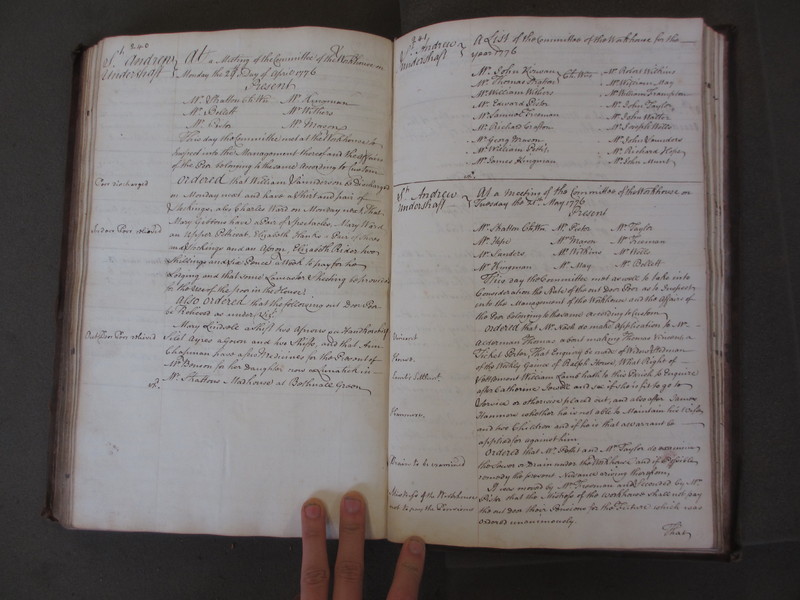 240
St. Andrew
Undershaft
At a Meeting of the Committee of the Workhouse on
Monday the 29th Day of April 1776
Present
Mr. Stratton Ch Wn Mr. Kingman
Mr. Bellett Mr. Withers
Mr. Pector Mr. Mason
This day the Committee met at the Workhouse to
Inspect into the Management thereof and the Affairs
of the Poor belonging to the same According to Custom
Poor discharged
Ordered that William Saunderson be Discharged
on Monday next and have a Shirt and pair of
Stockings, also Charles Ward on Monday next, that
Indoor Poor relieved
Mary have a Pair of Spectacles, Mary Ward
an upper Petticoat, Elizabeth a Pair of Shoes
and Stockings and an Apron, Elizabeth Rider two
Shillings and Six Pence a Week to pay for her
Lodging and that some Lancaster Sheeting be provided
for the use of the poor in the House
Also ordered that the following out Door Poor
be Relieved as under Vizt
Out Door Poor relieved
Mary a Shift two Aprons and Handkerchief
Silal Ayres a Gown and two Shifts, and that Ann
Chapman have a few Medicines for the Present of
Mr. Benson for her Daughter now a Lunatick in
Mr. Strattons Madhouse at Bethnall Green
241
St. Andrew
Undershaft
A List of the Committee of the Workhouse for the
year 1776
Mr. John Kirwan Mr. Wilkins
Mr. Thomas Stratton Ch Wns Mr. William May
Mr. William Withers Mr. William
Mr. Edward Pector Mr. John Taylor
Mr. Samuel Freeman Mr. John
Mr. Richard Mr. Joseph Wells
Mr. Georg Mason Mr. John Saunders
Mr. William Mr. Richard Hope
Mr. James Kingman Mr. John
St. Andrew
Undershaft
At a Meeting of the Committee of the Workhouse on
Tuesday the 21st May 1776
Present
Mr. Stratton Ch Wn Mr. Pector Mr. Taylor
Mr. Hope Mr. Mason Mr. Freeman
Mr. Sanders Mr. Wilkins Mr. Wells
Mr. Kingman Mr. May Mr. Bellett
This day the Committee met as well to take into
Consideration the State of the out Door Poor as to Inspect
into the Management of the Workhouse and the Affairs of
the Poor belonging to the same According to Custom
Ordered that Mr. do make application to Mr.
Ackerman Thomas about making Thomas a
Ticket Porter, That Enquiry be made of Widow
of the Weekly Games of Ralph, What Right of
Settlement William Lamb hath to this Parish to Enquire
after Catherine and see if she is fit to go to
Service or otherwise placed out, and also after James
whether he is not able to Maintain his Wife
and two Children and if he is that a warrant be
applied for against him
Drain to be examined
Ordered that Mr. and Mr. Taylor do examine
the Sewer or Drain under the Workhouse and if Possible
remedy the present Nuisance arising therefrom
Master of the Workhouse
not to pay the Pensions
It was moved by Mr. Freeman and Seconded by Mr.
Pector that the Master of the Workhouse shall not pay
the out door their Pensions for the Future which was
Ordered unanimously
That